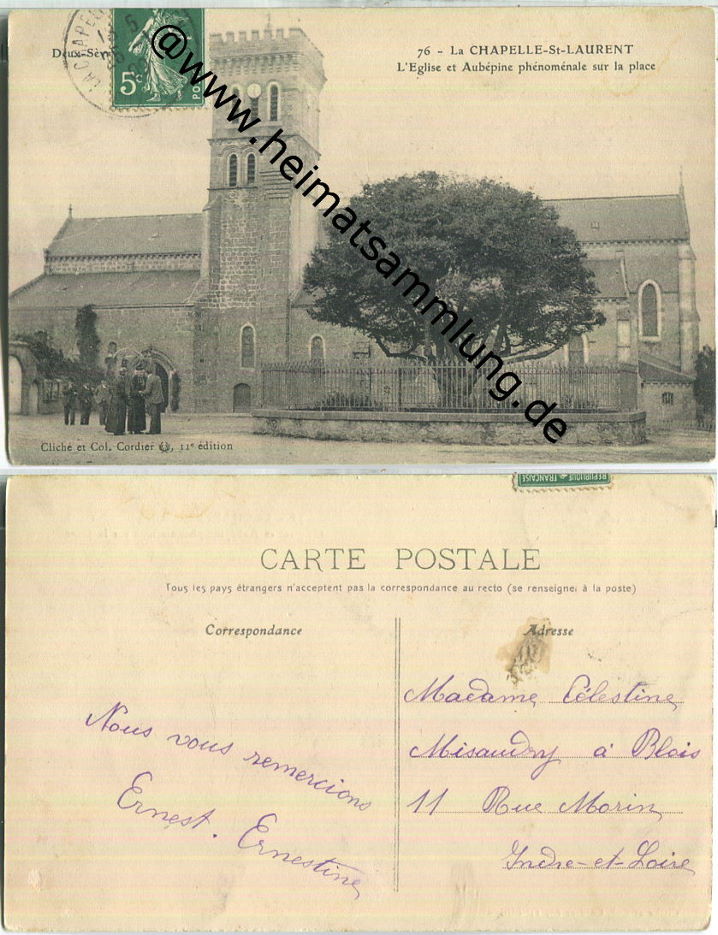 Deux-Sèv
76 - La CHAPELLE-St-LAURENT
L'Eglise et Aubépine phénoménale sur la place
5c
PO
LA CHAPEL
@www.heimatsammlung.de
Cliché et Col. Cordier, 11e édition
REPUBLIQUE FRANÇAISE
CARTE POSTALE
Tous les pays étrangers n'acceptent pas la correspondance au recto (se renseigner à la poste)
Correspondance
Nous vous remercions
Ernest. Ernestine
Adresse
Madame Célestine
Misaudry à Blois
11 Rue Morin
Indre-et-Loire